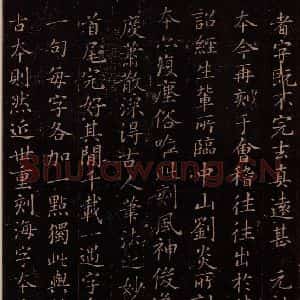 者字既不完去真遠甚元
本今再刻于會稽往往出於
詔經生輩所臨中山劉炎所
本亦復塵俗唯此刻風神俊
度蕭散深得古人筆法之妙
首尾完好其間千載一遇字
一句每字各加一點獨此與
古本則然近世重刻海字本
Shufawang.CN